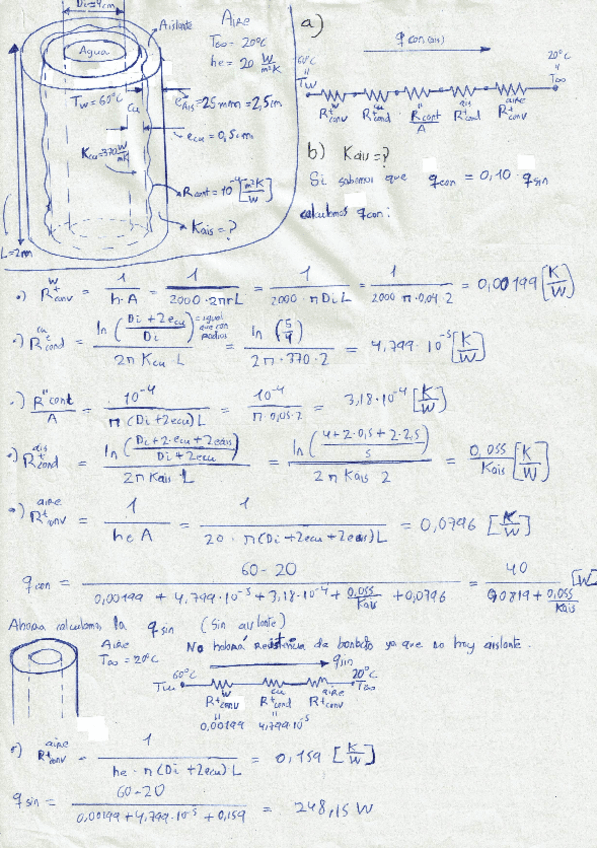 Di=4cm
Aislante
Aire
T∞ = 20ºC
he = 20 W/m²K
Agua
Tw=60ºC
Cu
eAis=25mm=2,5cm
ecu=0,5cm
Kcu=370 W/mK
Rcont=10⁻⁴ [m²K/W]
Kais=?
L=2m
a)
q con(ais)
60ºC
20ºC
Tw
T∞
Rᵗconv w
Rᵗcond cu
R"cont/A
Rᵗcond ais
Rᵗconv aire
b) Kais=?
Si sabemos que qcon = 0,10·qsin
calculamos qcon:
·) Rᵗconv w = 1/(h·A) = 1/(2000·2πrL) = 1/(2000·πDiL) = 1/(2000·π·0,04·2) = 0,00199 [K/W]
·) Rᵗcond cu = ln((Di+2ecu)/Di)/(2πKcu L) = igual que con radios = ln(5/4)/(2π·370·2) = 4,799·10⁻⁵ [K/W]
·) R"cont/A = 10⁻⁴/(π(Di+2ecu)L) = 10⁻⁴/(π·0,05·2) = 3,18·10⁻⁴ [K/W]
·) Rᵗcond ais = ln((Di+2·ecu+2eais)/(Di+2ecu))/(2πKais·L) = ln((4+2·0,5+2·2,5)/5)/(2πKais 2) = 0,055/Kais [K/W]
·) Rᵗconv aire = 1/(he A) = 1/(20·π(Di+2ecu+2eais)L) = 0,0796 [K/W]
qcon = (60-20)/(0,00199 + 4,799·10⁻⁵ + 3,18·10⁻⁴ + 0,055/Kais + 0,0796) = 40/(0,0819+0,055/Kais) [W]
Ahora calculamos la qsin (Sin aislante)
Aire
T∞=20ºC
No habrá resistencia de contacto ya que no hay aislante.
qsin
60ºC
20ºC
Tw
T∞
Rᵗconv w
Rᵗcond cu
Rᵗconv aire
0,00199
4,799·10⁻⁵
·) Rᵗconv aire = 1/(he·π(Di+2ecu)L) = 0,159 [K/W]
qsin = (60-20)/(0,00199+4,799·10⁻⁵+0,159) = 248,15 W